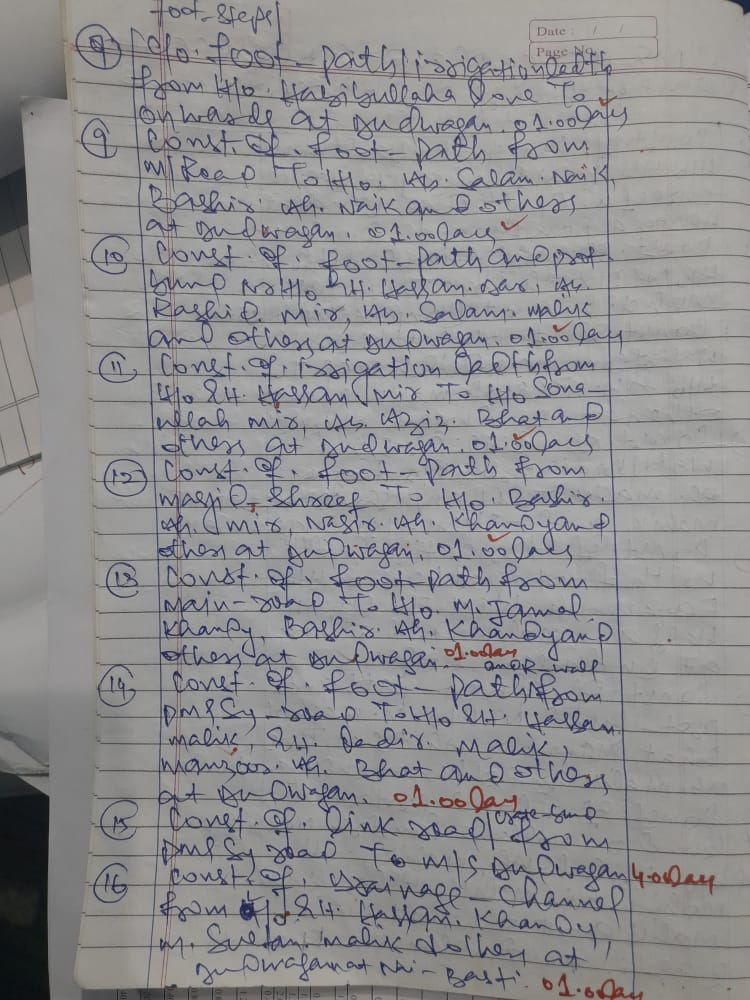 foot-steps
Date : / /
Page No.
8 C/o. foot-path/irrigation
from H/o. Habibullaha Lone To
onwards at Dudwagan. 01.00 Lacs
9 Const. of. foot-path from
M/Road To H/o. Ah. Salam. Naik,
Bashir. Ah. Naik and others
at Dudwagan. 01.00 Lacs
10 Const. of. foot-path and
Bund Nr H/o Gh. Hassan. Dar, Ah.
Rashid. Mir, Ah. Salam. Malik
and others at Dudwagan. 01.00 Lacs
11 Const. of. irrigation from
H/o Gh. Hassan Mir To H/o Sona-
ullah Mir, Ah. Aziz. Bhat and
others at Dudwagan. 01.00 Lacs
12 Const. of. foot-path from
Masjid Shreef To H/o. Bashir.
Ah. Mir, Nasir. Ah. Khandy and
others at Dudwagan. 01.00 Lacs
13 Const. of. foot-path from
Main-road To H/o. M. Jamal.
Khandy, Bashir. Ah. Khandy and
others at Dudwagan. 01.00 Lacs
and R-wall
14 Const. of. foot-path from
PMGSY-road To H/o Gh. Hassan.
Malik, Gh. Qadir. Malik,
Manzoor. Ah. Bhat and others
at Dudwagan. 01.00 Lacs
15 Const. of. Link road/ from
PMGSY road To M/S Dudwagan 4.0 Lacs
16 Const. of. Drainage-Channel
from Gh. Hassan. Khandy,
M. Sultan. Malik & others at
Dudwagan at Nai-Basti. 01.0 Lacs